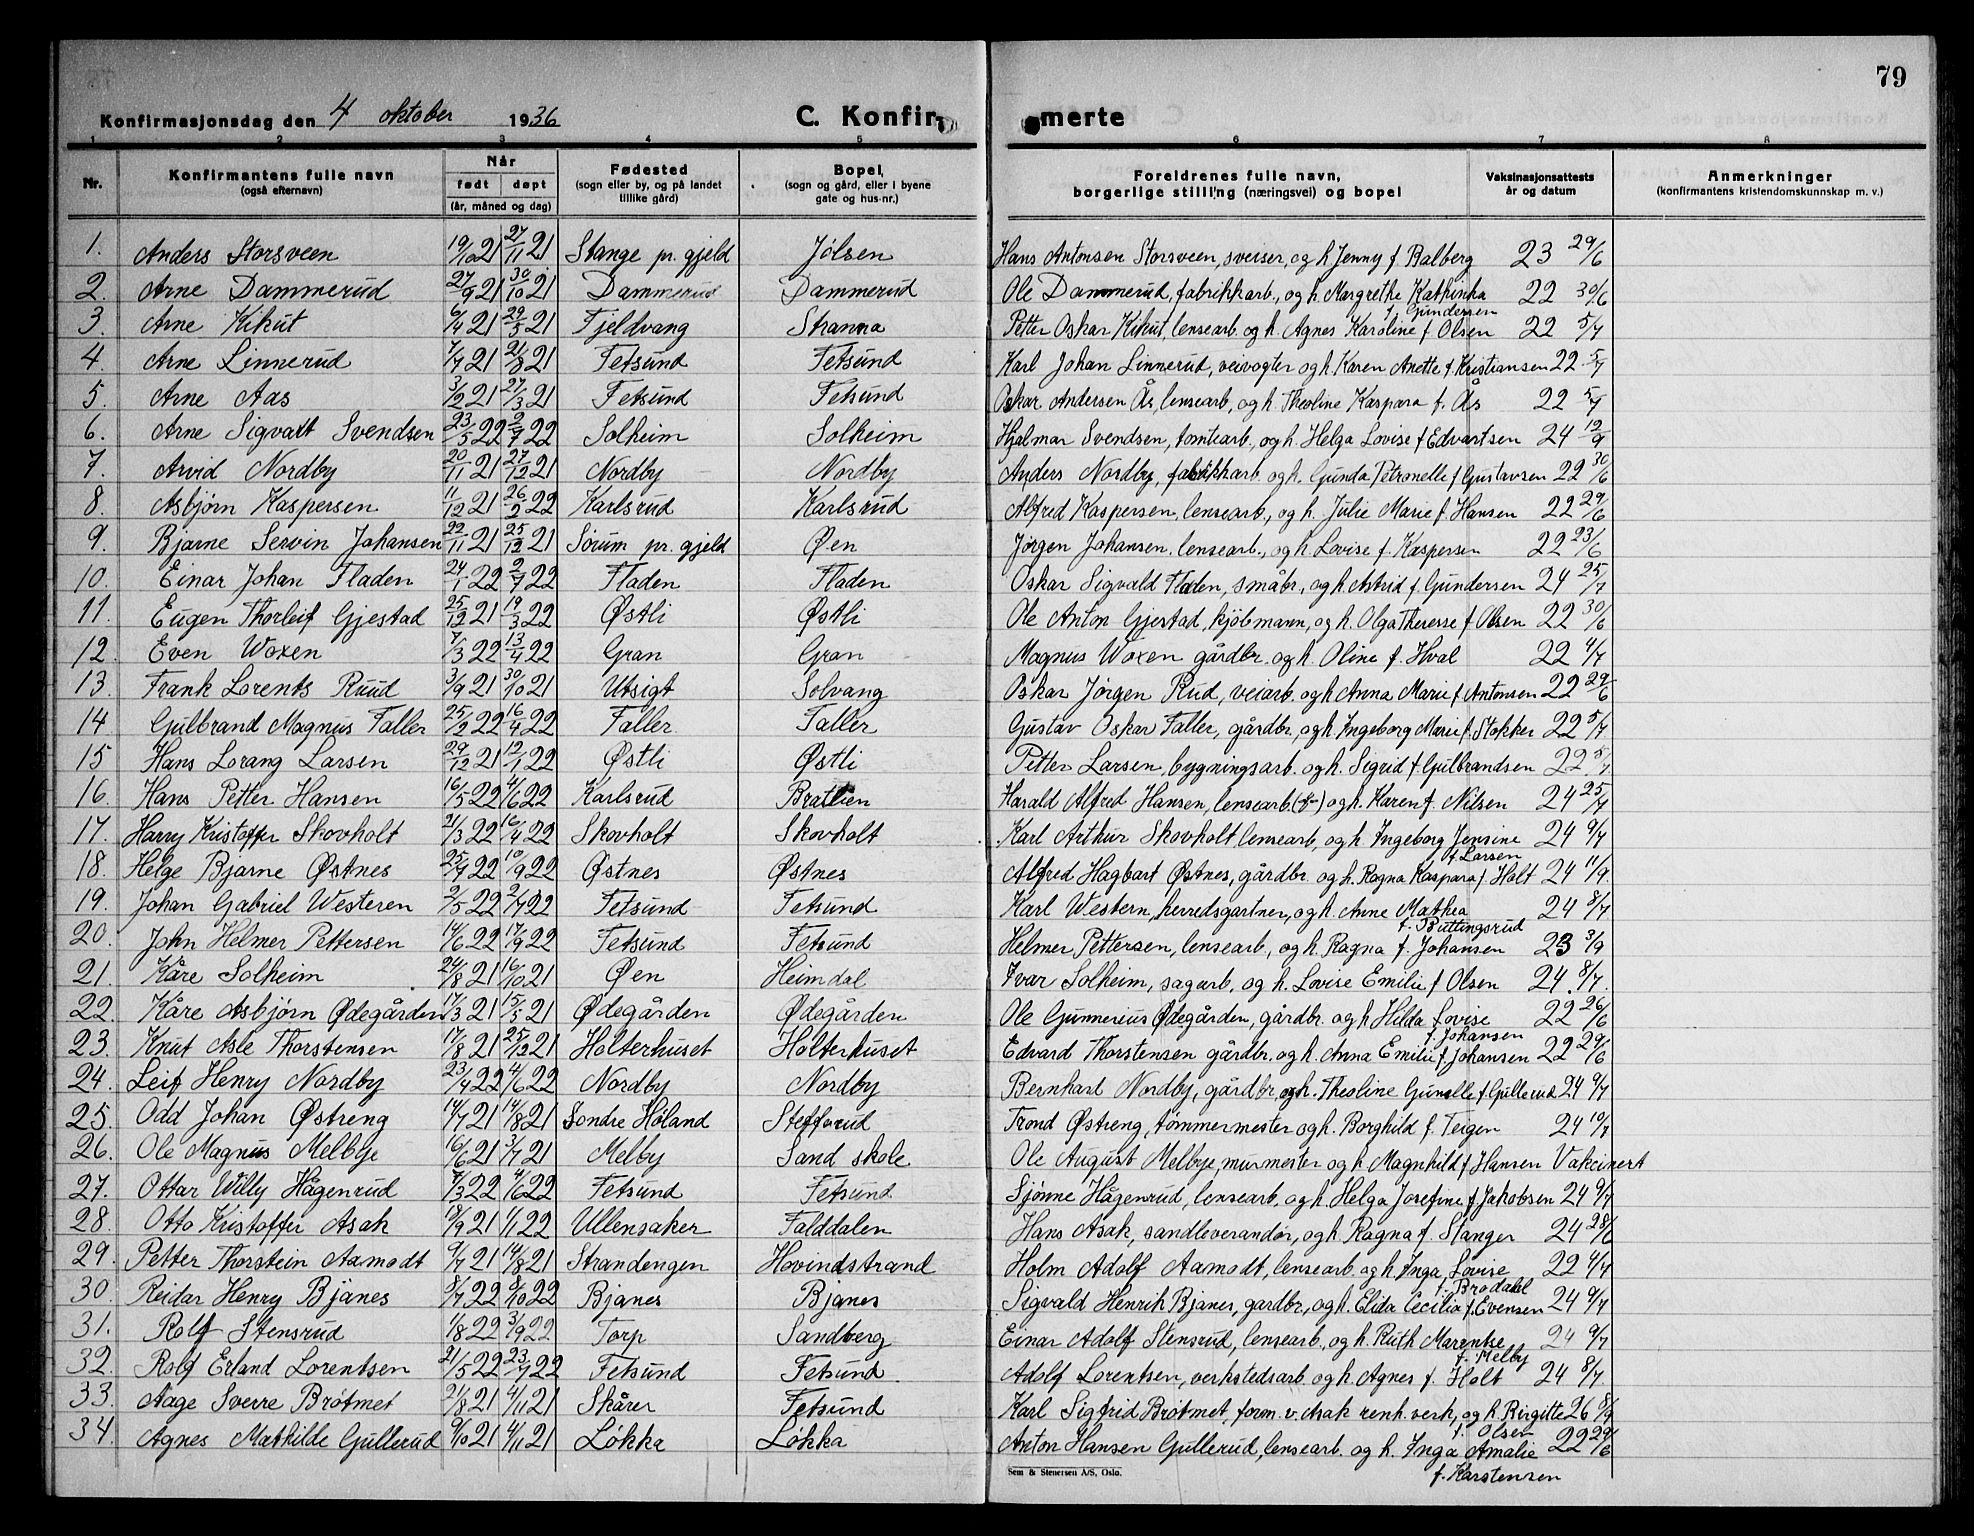 79
Konfirmasjonsdag den 4 oktober 1936 C. Konfir- merte
1 2 3 4 5 6 7 8
Nr. Konfirmantens fulle navn (også efternavn) Når født døpt (år, måned og dag) Fødested (sogn eller by, og på landet tillike gård) Bopel, (sogn og gård, eller i byene gate og hus-nr.) Foreldrenes fulle navn, borgerlige stilling (næringsvei) og bopel Vaksinasjonsattests år og datum Anmerkninger (konfirmantens kristendomskunnskap m. v.)
1. Anders Storsveen 19/10 21 27/11 21 Stange pr. gjeld Jølsen Hans Antonsen Storsveen, sveiser, og h. Jenny f. Balberg 23 29/6
2. Arne Dammerud 27/9 21 30/10 21 Dammerud Dammerud Ole Dammerud, fabrikkarb., og h. Margrethe Kathinka f. Gundersen 22 30/6
3. Arne Kikut 6/4 21 29/5 21 Fjeldvang Stranna Petter Oskar Kikut, lensearb. og h. Agnes Karoline f. Olsen 22 5/7
4. Arne Linnerud 7/7 21 21/8 21 Fetsund Fetsund Karl Johan Linnerud, veivogter og h. Karen Anette f. Kristiansen 22 5/7
5. Arne Aas 3/2 21 27/3 21 Fetsund Fetsund Oskar Andersen Ås, lensearb, og h. Theoline Kaspara f. Ås 22 5/7
6. Arne Sigvart Svendsen 23/5 22 2/7 22 Solheim Solheim Hjalmar Svendsen, tomtearb., og h. Helga Lovise f. Edvartsen 24 12/9
7. Arvid Nordby 20/11 21 27/12 21 Nordby Nordby Anders Nordby, fabrikkarb og h. Gunda Petronelle f. Gustavsen 22 30/6
8. Asbjørn Kaspersen 11/12 21 26/2 22 Karlsrud Karlsrud Alfred Kaspersen, lensearb., og h. Julie Marie f. Hansen 22 29/6
9. Bjarne Servin Johansen 22/11 21 25/12 21 Sørum pr. gjeld Øen Jørgen Johansen, lensearb., og h. Lovise f. Kaspersen 22 23/6
10. Einar Johan Fladen 24/1 22 2/7 22 Fladen Fladen Oskar Sigvald Fladen, småbr., og h. Astrid f. Gundersen 24 25/7
11. Eugen Thorleif Gjestad 25/12 21 19/3 22 Østli Østli Ole Anton Gjestad, kjøbmann, og h. Olga Theresse f. Olsen 22 30/6
12. Even Woxen 7/3 22 13/4 22 Gran Gran Magnus Woxen gårdbr. og h. Oline f. Hval 22 4/7
13. Frank Lorents Ruud 3/9 21 30/10 21 Utsigt Solvang Oskar Jørgen Rud, veiarb. og h. Anna Marie f. Antonsen 22 29/6
14 Gulbrand Magnus Faller 25/2 22 16/4 22 Faller Faller Gustav Oskar Faller, gårdbr., og h. Ingeborg Marie f. Stokker 22 5/7
15 Hans Lorang Larsen 29/12 21 12/1 22 Østli Østli Petter Larsen, bygningsarb. og h. Sigrid f. Gulbrandsen 22 5/7
16. Hans Petter Hansen 16/5 22 4/6 22 Karlsrud Bratlien Harald Alfred Hansen, lensearb. og h. Karen f. Nilsen 24 25/7
17. Harry Kristoffer Skovholt 21/3 22 16/4 22 Skovholt Skovholt Karl Arthur Skovholt, lensearb, og h Ingeborg Jensine f. Larsen 24 9/7
18. Helge Bjarne Østnes 25/7 22 10/9 22 Østnes Østnes Alfred Hagbart Østnes, gårdbr. og h. Ragna Kaspara f. Holt 24 11/9
19. Johan Gabriel Westeren 2/5 22 2/7 22 Fetsund Fetsund Karl Western, herredsgartner, og h. Anne Mathea f. Buttingsrud 24 8/7
20. John Helmer Pettersen 14/6 22 17/9 22 Fetsund Fetsund Helmer Pettersen, lensearb., og h. Ragna f. Johansen 23 3/9
21. Kåre Solheim 24/8 21 16/10 21 Øen Heimdal Ivar Solheim, sagarb, og h. Lovise Emilie f. Olsen 24 8/7
22. Kåre Asbjørn Ødegården 17/3 21 15/5 21 Ødegården Ødegården Ole Gunnerius Ødegården, gårdbr. og h. Hilda Lovise f. Johansen 22 26/6
23. Knut Asle Thorstensen 17/8 21 25/12 21 Holterhuset Holterhuset Edvard Thorstensen gårdbr. og h. Anna Emilie f. Johansen 22 29/6
24. Leif Henry Nordby 23/4 22 4/6 22 Nordby Nordby Bernhart Nordby, gårdbr. og h. Theoline Gunelle f. Gullerud 24 9/7
25. Odd Johan Østreng 14/7 21 14/8 21 Søndre Høland Stefferud Trond Østreng, tømmermester og h. Borghild f. Teigen 24 10/7
26. Ole Magnus Melbye 16/6 21 3/7 21 Melby Sand skole Ole August Melbye, murmester og h. Magnhild f. Hansen Vakcinert
27. Ottar Willy Hågenrud 7/3 22 4/6 22 Fetsund Fetsund Sjønne Hågenrud, lensearb., og h. Helga Josefine f. Jakobsen 24 9/7
28. Otto Kristoffer Asak 18/9 21 1/1 22 Ullensaker Falddalen Hans Asak, sandleverandør, og h. Ragna f. Stanger 24 28/6
29. Petter Thorstein Aamodt 9/7 21 14/8 21 Strandengen Hovindstrand Holm Adolf Aamodt, lensearb. og h. Inga Lovise f. Brødahl 22 4/7
30. Reidar Henry Bjanes 8/7 22 8/10 22 Bjanes Bjanes Sigvald Henrik Bjanes, gardbr., og h. Elida Cecilia f. Evensen 24 9/7
31. Rolf Stensrud 1/8 22 3/9 22 Torp Sandberg Einar Adolf Stensrud, lensearb., og h. Ruth Marentse f. Melby 24 9/7
32. Rolf Erland Lorentsen 21/5 22 23/7 22 Fetsund Fetsund Adolf Lorentsen, verkstedsarb. og h. Agnes f. Holt 24 8/7
33. Aage Sverre Brøtmet 21/8 21 4/11 21 Skårer Fetsund Karl Sigfrid Brøtmet, form. v. Asak renh. verk, og h. Birgitte f. Olsen 26 8/9
34. Agnes Mathilde Gullerud 9/10 21 4/11 21 Løkka Løkka Anton Hansen Gullerud, lensearb. og h. Inga Amalie f. Karstensen 22 29/6
Sem & Stenersen A/S, Oslo.